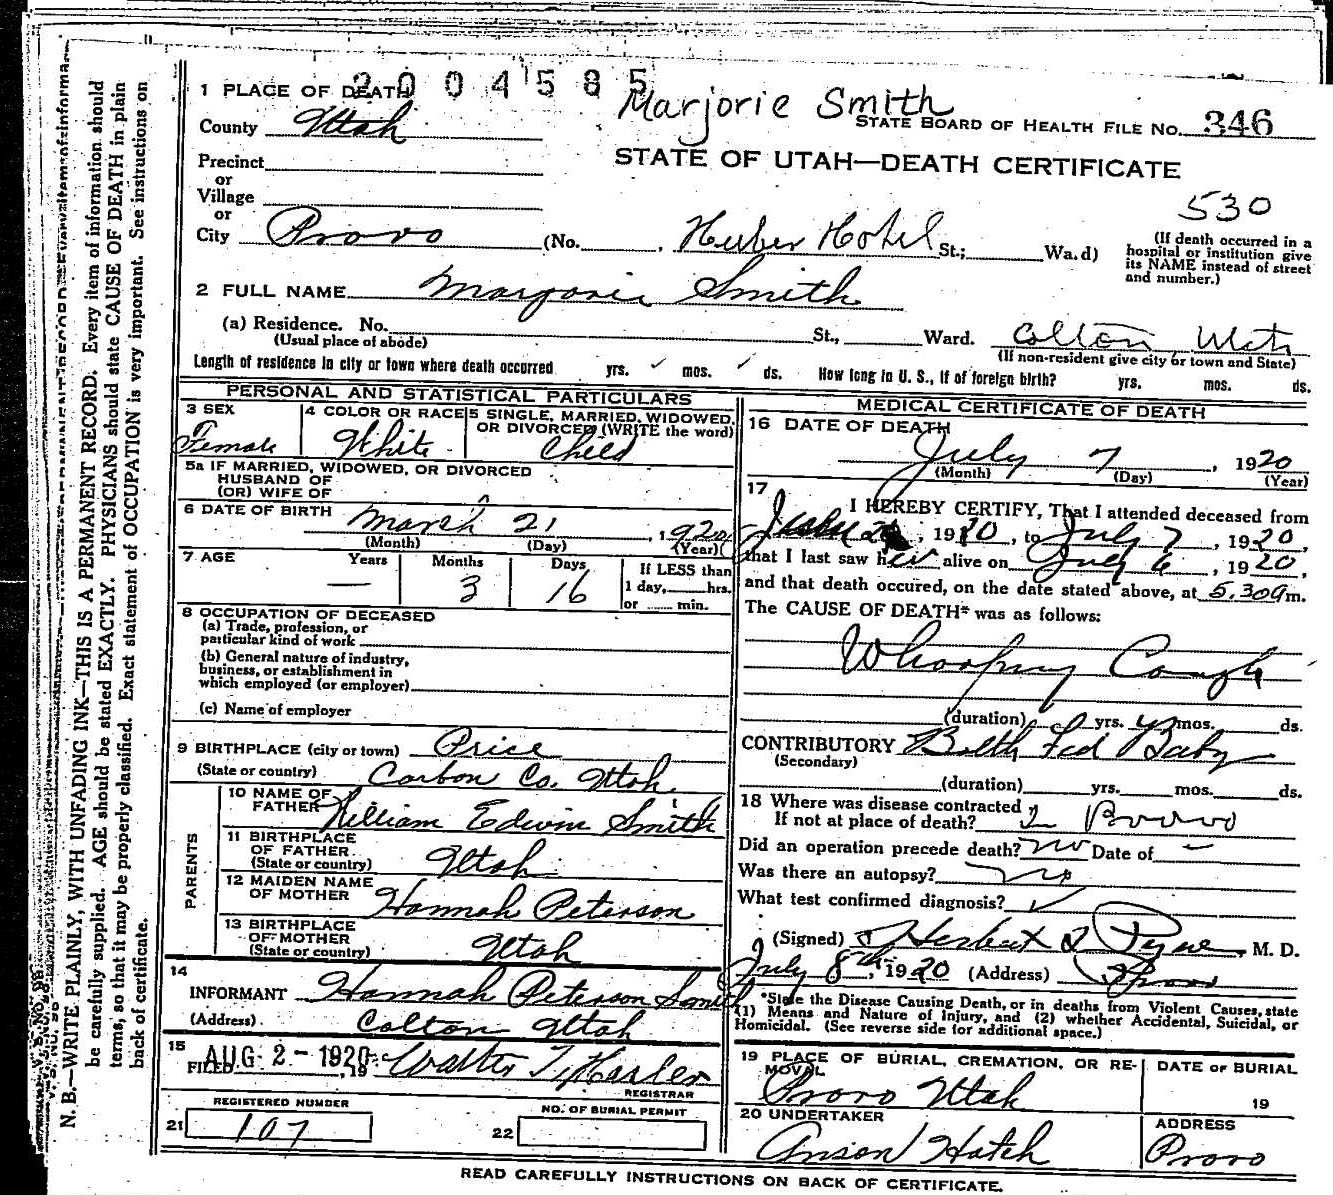 2004585
Marjorie Smith
1 PLACE OF DEATH
STATE BOARD OF HEALTH FILE No. 346
County Utah
STATE OF UTAH—DEATH CERTIFICATE
Precinct
or
Village
or
530
City Provo (No. , Huber Hotel St.; Wa.d)
(If death occurred in a hospital or institution give its NAME instead of street and number.)
2 FULL NAME Marjorie Smith
(a) Residence. No. St., Ward. Colton Utah
(Usual place of abode) (If non-resident give city or town and State)
Length of residence in city or town where death occurred yrs. ✓ mos. ✓ ds. How long in U. S., if of foreign birth? yrs. mos. ds.
PERSONAL AND STATISTICAL PARTICULARS
3 SEX Female
4 COLOR OR RACE White
5 SINGLE, MARRIED, WIDOWED, OR DIVORCED (WRITE the word) Child
5a IF MARRIED, WIDOWED, OR DIVORCED
HUSBAND OF
(OR) WIFE OF
6 DATE OF BIRTH March 21, 1920
(Month) (Day) (Year)
7 AGE Years — Months 3 Days 16
If LESS than 1 day, hrs. or min.
8 OCCUPATION OF DECEASED
(a) Trade, profession, or particular kind of work
(b) General nature of industry, business, or establishment in which employed (or employer)
(c) Name of employer
9 BIRTHPLACE (city or town) Price
(State or country) Carbon Co. Utah
PARENTS
10 NAME OF FATHER William Edwin Smith
11 BIRTHPLACE OF FATHER (State or country) Utah
12 MAIDEN NAME OF MOTHER Hannah Peterson
13 BIRTHPLACE OF MOTHER (State or country) Utah
14
INFORMANT Hannah Peterson Smith
(Address) Colton Utah
15
FILED AUG 2 - 1920, 19 Walter T. Hasler
REGISTRAR
REGISTERED NUMBER
21 107
NO. OF BURIAL PERMIT
22
MEDICAL CERTIFICATE OF DEATH
16 DATE OF DEATH
July 7, 1920
(Month) (Day) (Year)
17 I HEREBY CERTIFY, That I attended deceased from
, 1920, to July 7, 1920,
that I last saw her alive on July 6, 1920,
and that death occured, on the date stated above, at 5.30 a m.
The CAUSE OF DEATH* was as follows:
Whooping Cough
(duration) yrs. mos. ds.
CONTRIBUTORY Bottle Fed Baby
(Secondary)
(duration) yrs. mos. ds.
18 Where was disease contracted
If not at place of death? Provo
Did an operation precede death? no Date of —
Was there an autopsy? no
What test confirmed diagnosis? ✓
(Signed) Herbert Pyne, M. D.
July 8th, 1920 (Address) Provo
*State the Disease Causing Death, or in deaths from Violent Causes, state
(1) Means and Nature of Injury, and (2) whether Accidental, Suicidal, or
Homicidal. (See reverse side for additional space.)
19 PLACE OF BURIAL, CREMATION, OR REMOVAL Provo Utah
DATE OF BURIAL
19
20 UNDERTAKER Anson Hatch
ADDRESS Provo
READ CAREFULLY INSTRUCTIONS ON BACK OF CERTIFICATE.
N. B.—WRITE PLAINLY, WITH UNFADING INK—THIS IS A PERMANENT RECORD. Every item of information should
be carefully supplied. AGE should be stated EXACTLY. PHYSICIANS should state CAUSE OF DEATH in plain
terms, so that it may be properly classified. Exact statement of OCCUPATION is very important. See instructions on
back of certificate.